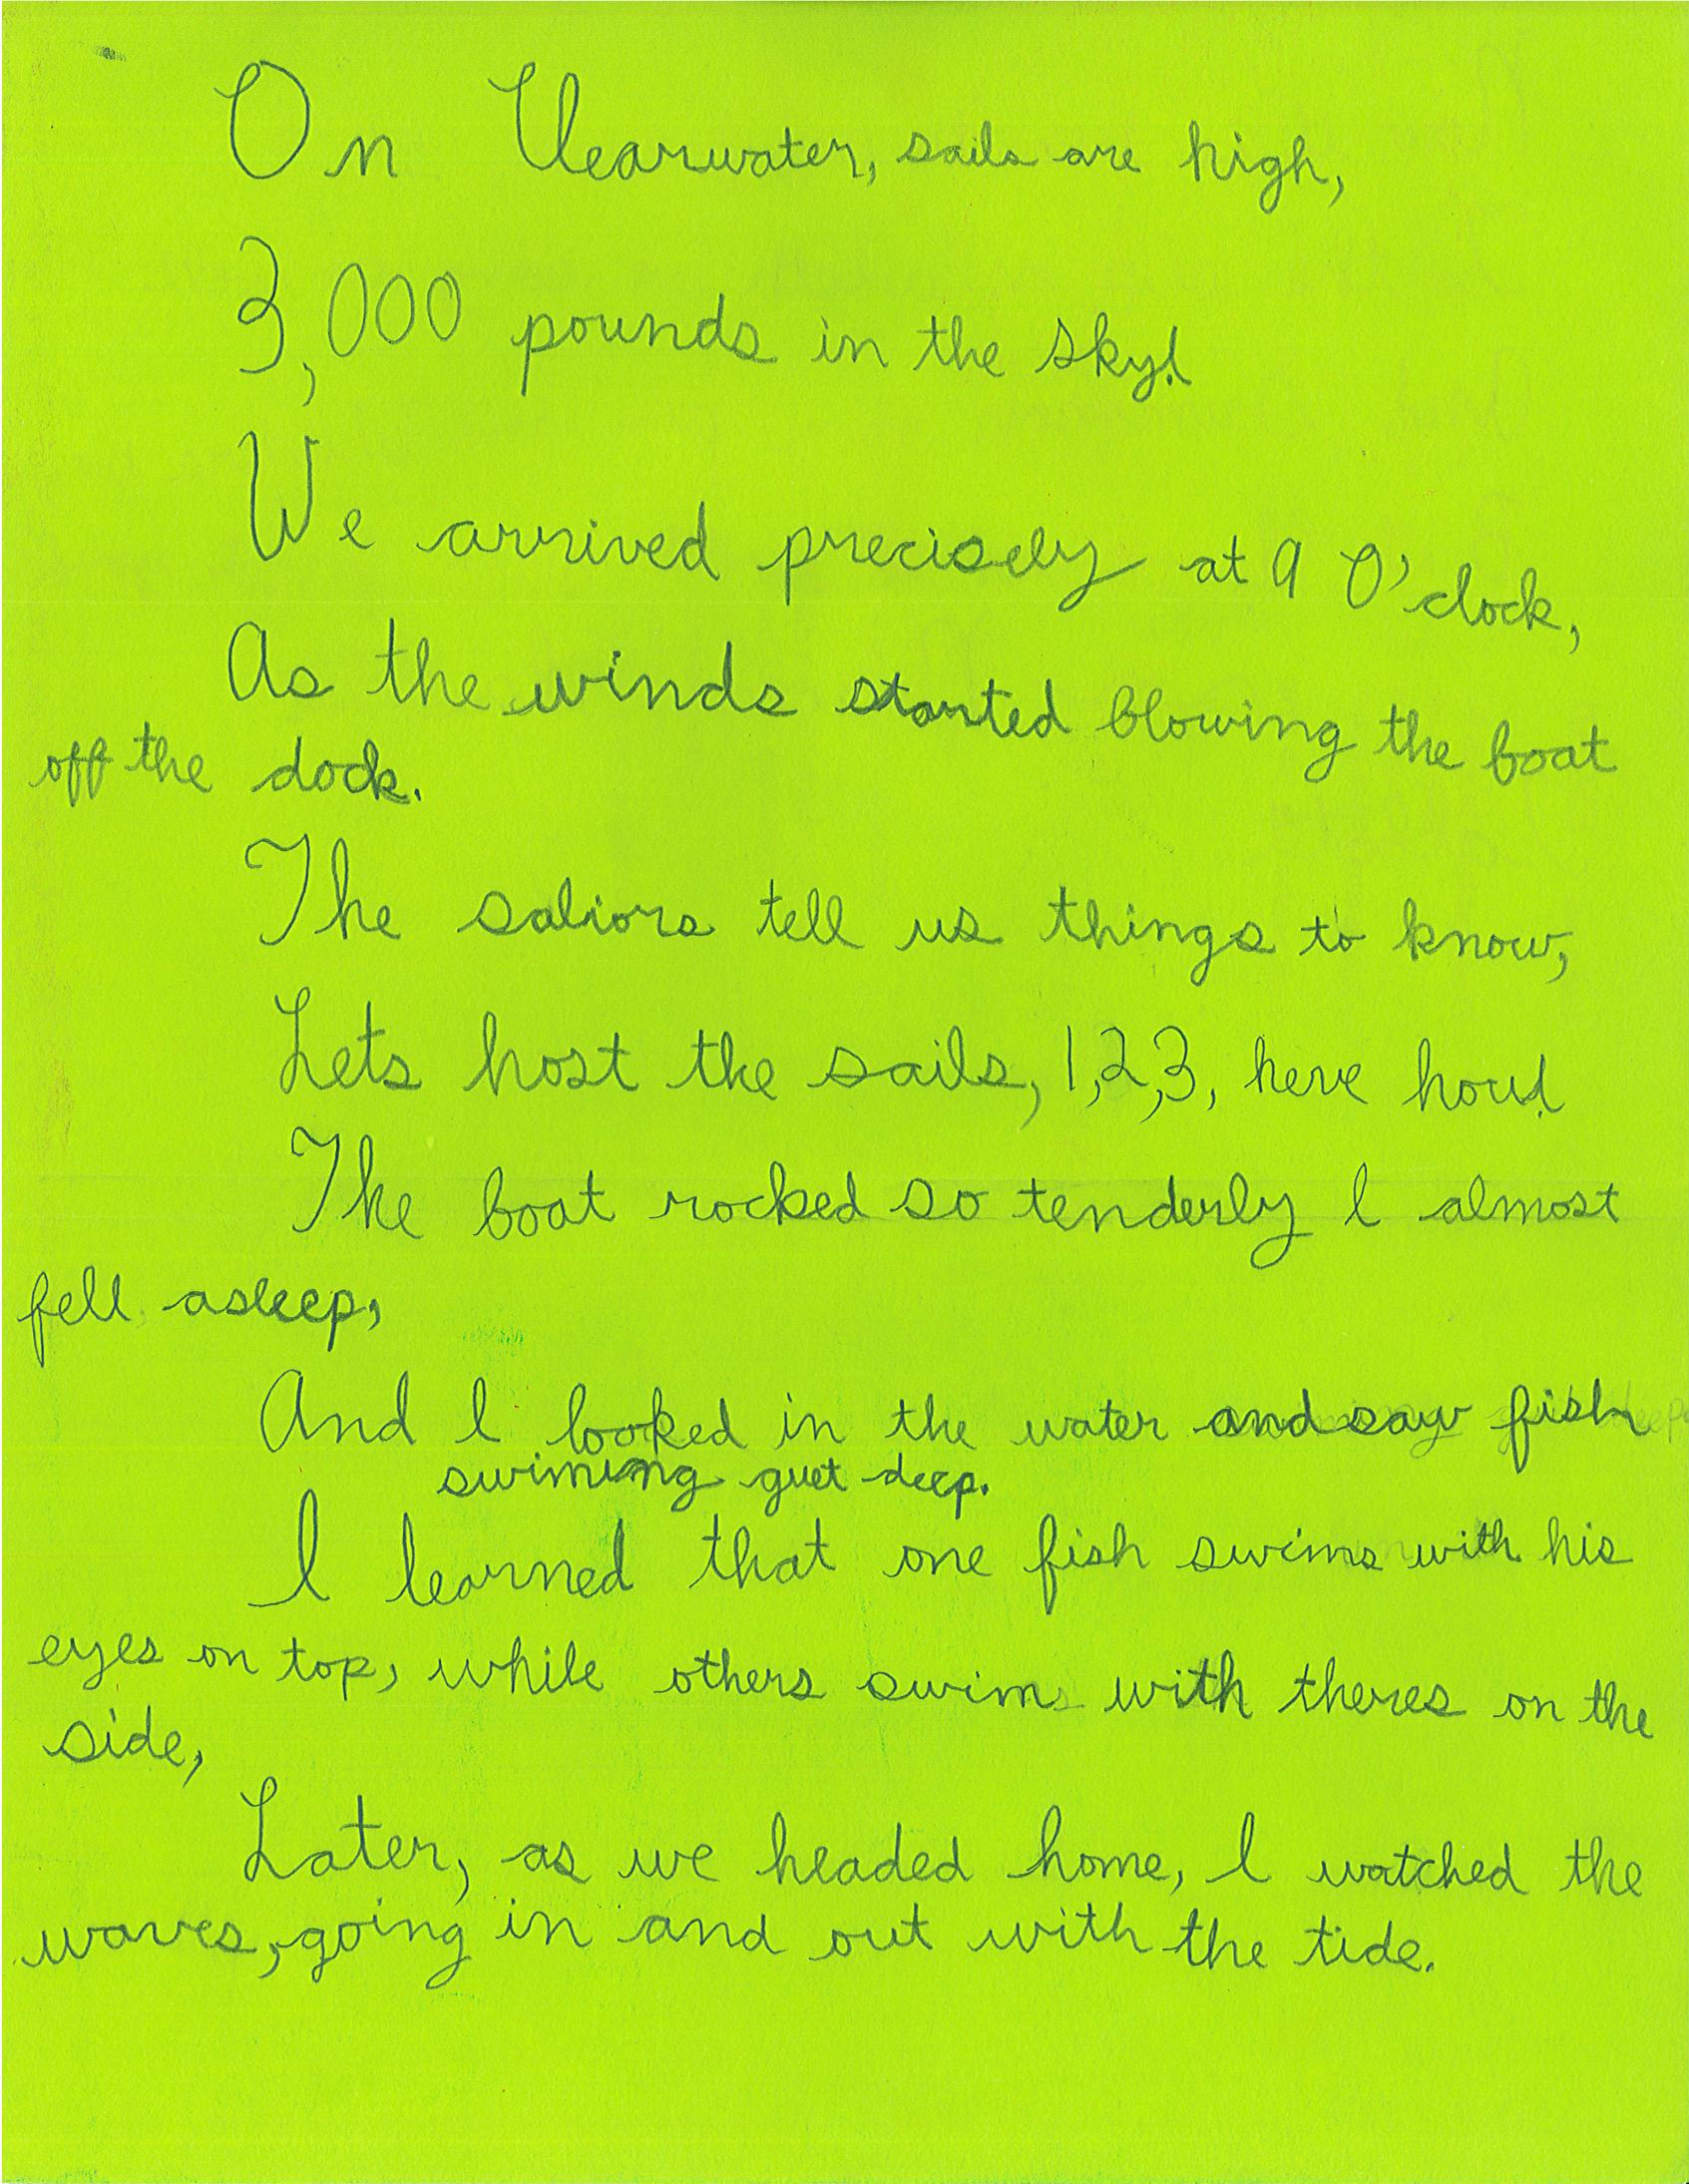 On Clearwater, sails are high,
3,000 pounds in the sky!
We arrived precisely at 9 O'clock,
As the winds started blowing the boat
off the dock.
The saliors tell us things to know,
Lets host the sails, 1,2,3, heve how!
The boat rocked so tenderly I almost
fell asleep,
And I looked in the water and saw fish
swimming quet deep.
I learned that one fish swims with his
eyes on top, while others swim with theres on the
side,
Later, as we headed home, I watched the
waves, going in and out with the tide.